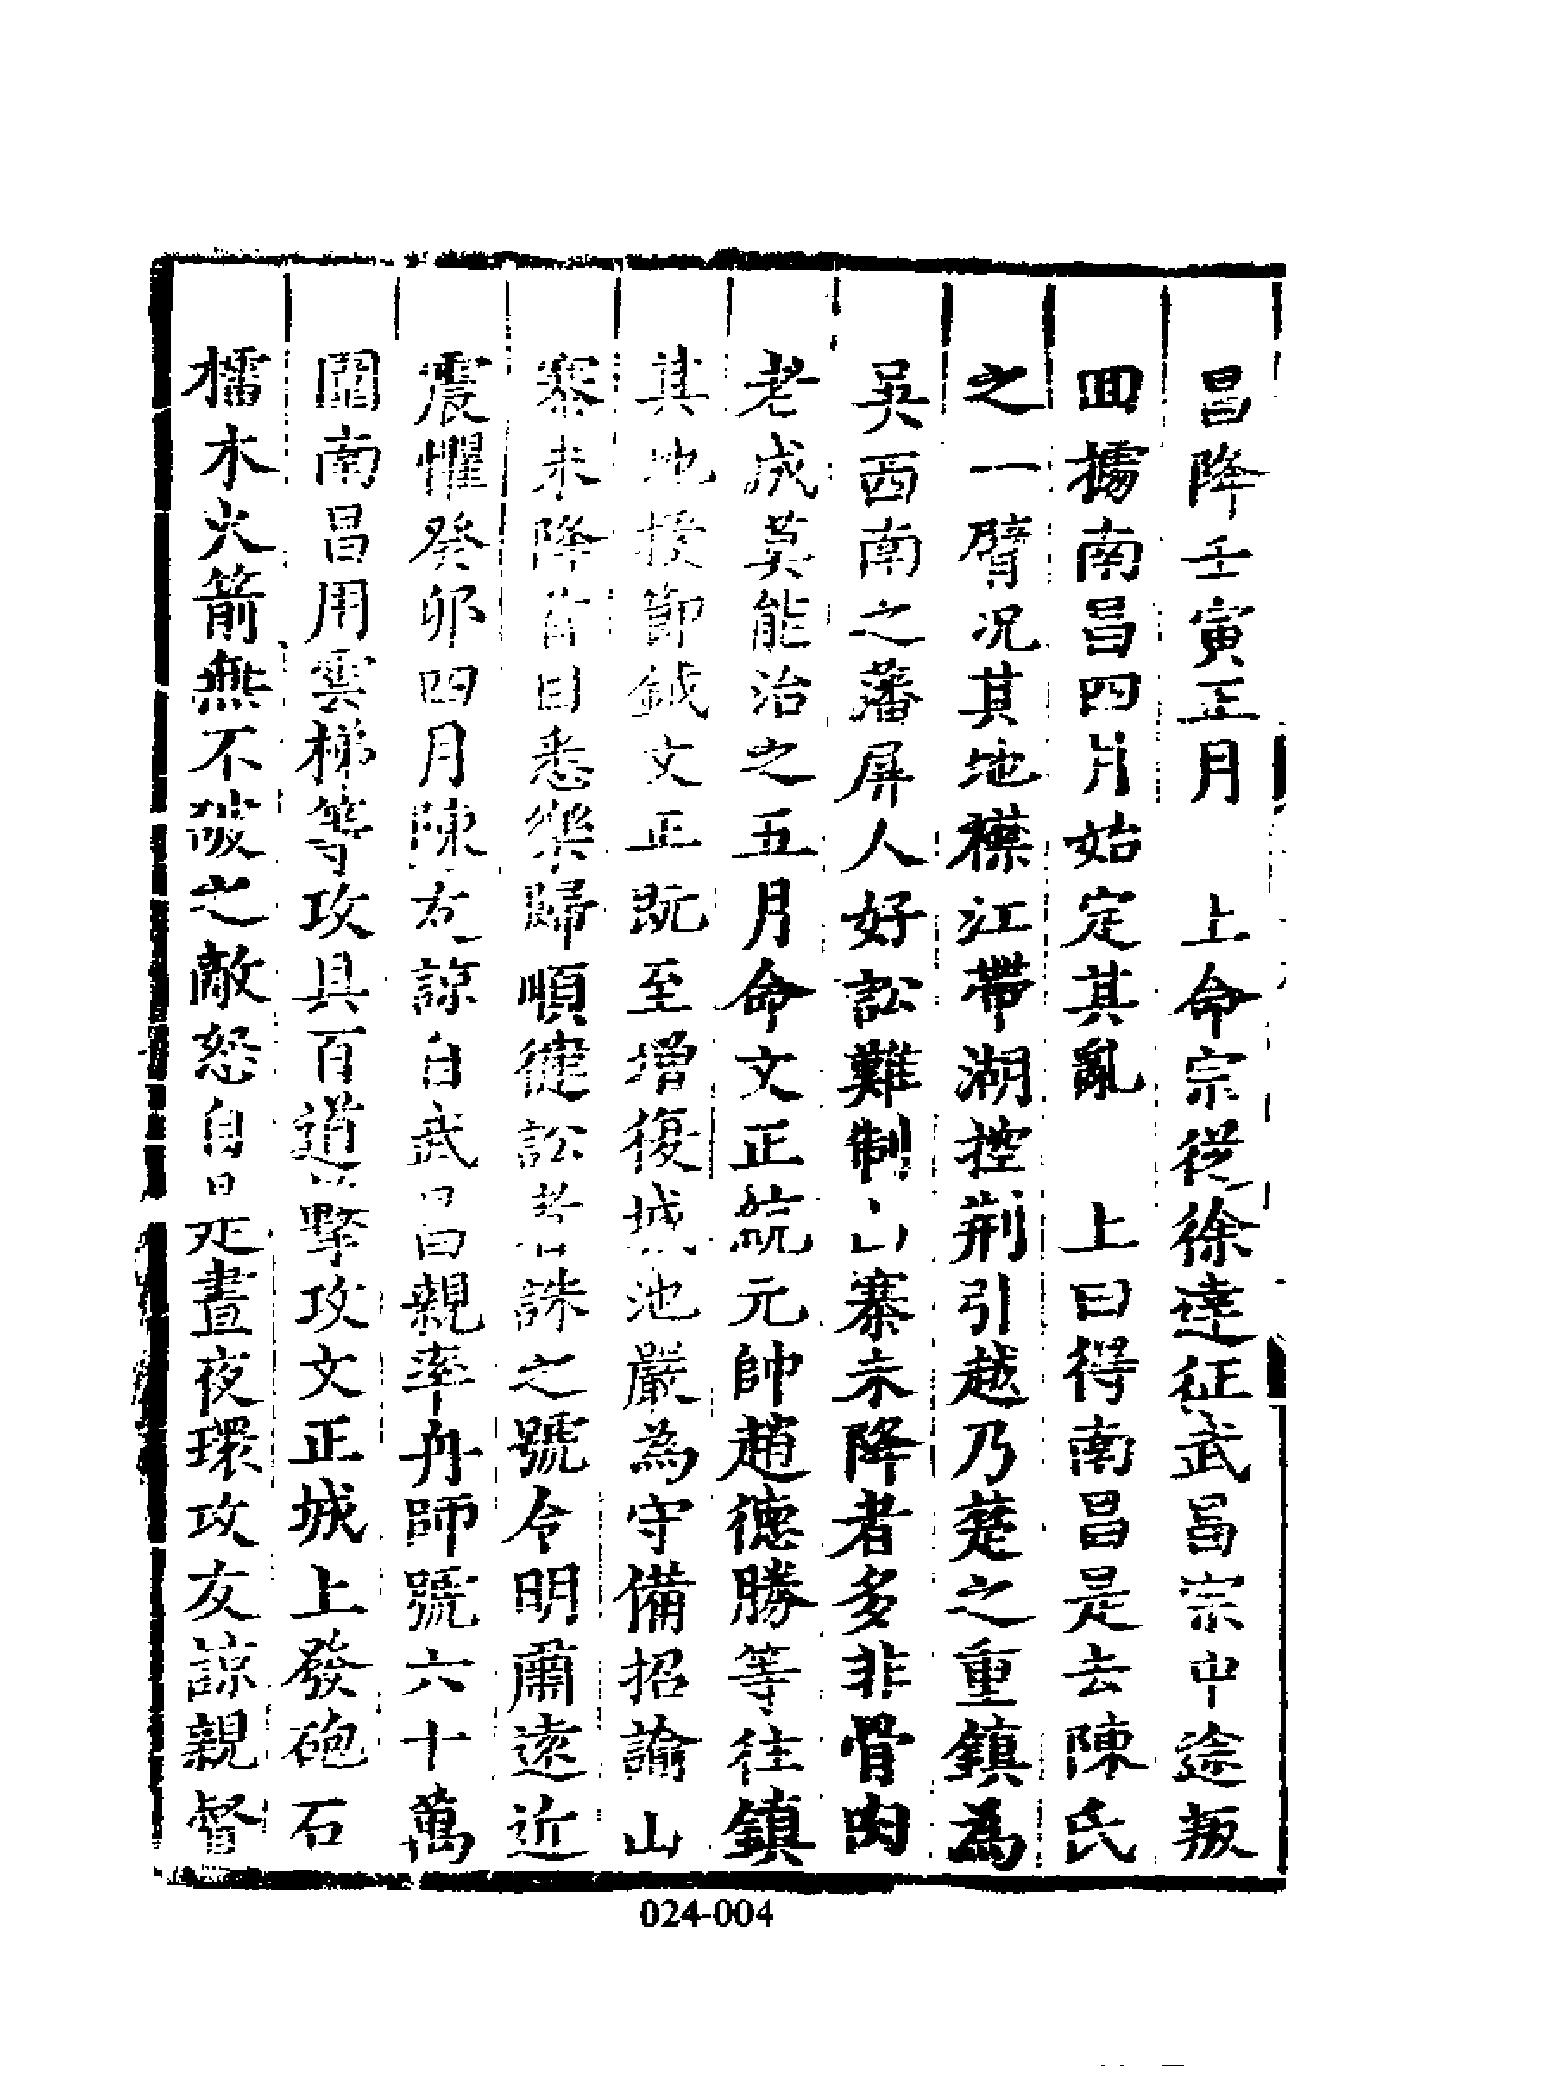 昌降壬寅正月　上命宗從徐達征武昌宗中途叛
囬據南昌四月始定其亂　上曰得南昌是去陳氏
之一臂况其地襟江帶湖控荆引越乃楚之重鎮為
吳西南之藩屏人好訟難制山寨未降者多非骨肉
老成莫能治之五月命文正統元帥趙德勝等往鎮
其地授節鉞文正既至增復城池嚴為守備招諭山
寨未降首目悉樂歸順健訟者誅之號令明肅遠近
震懼癸卯四月陳友諒自武昌親率舟師號六十萬
圍南昌用雲梯等攻具百道並擊攻文正城上發砲石
檑木火箭無不破之敵怒自是晝夜環攻友諒親督
024-004